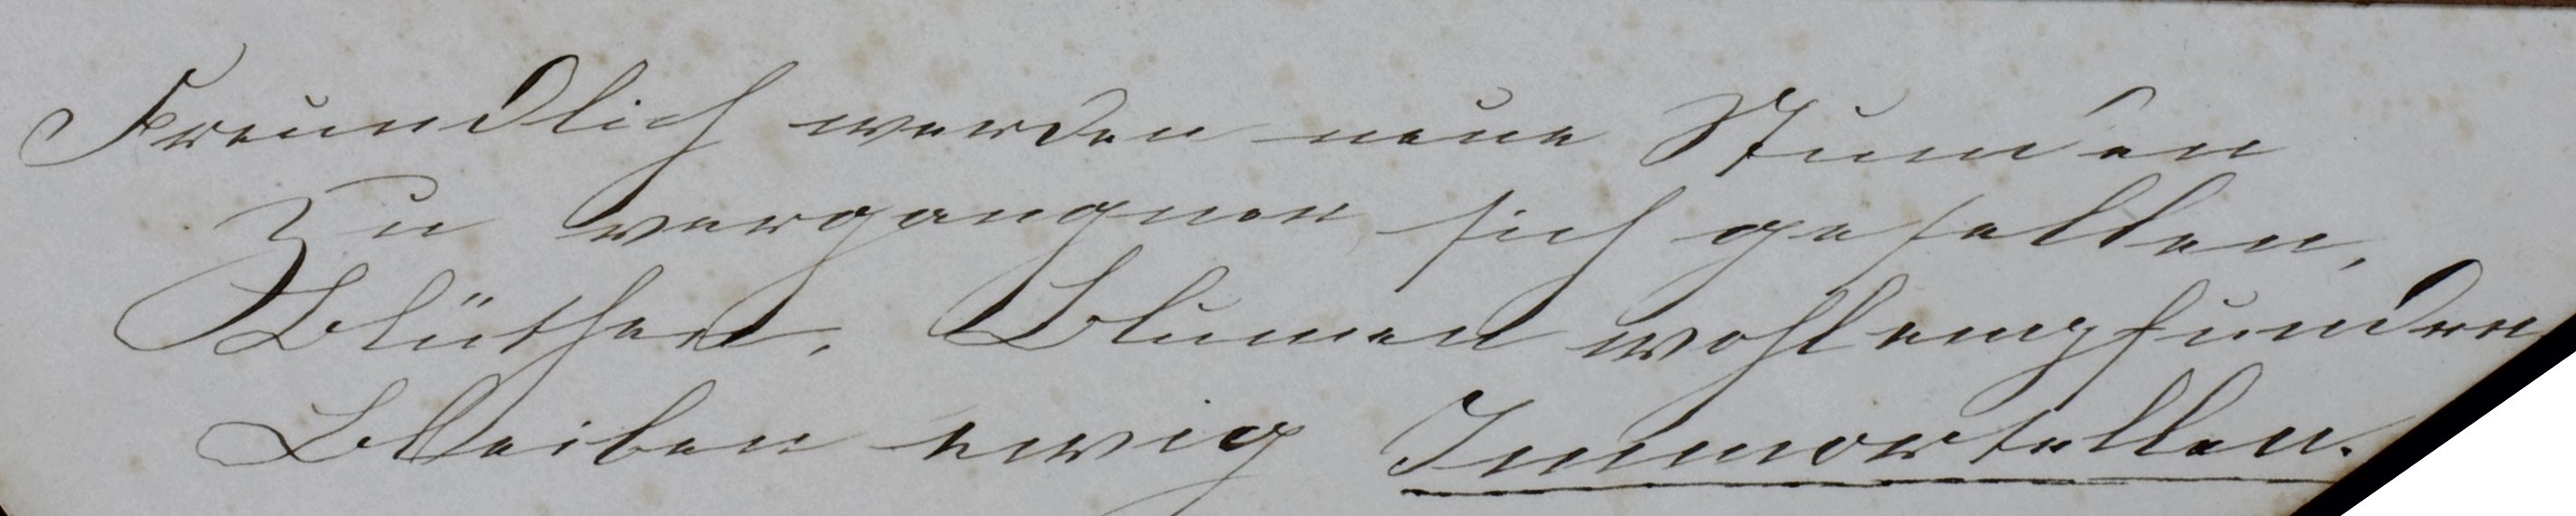 Freundlich werden neue Stunden
Zu vergangnen sich gesellen,
Blüthen, Blumen wohlempfunden
Bleiben ewig Immortellen.